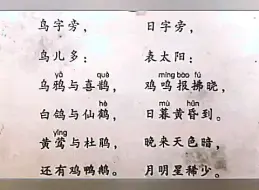 鸟字旁，
鸟儿多：
yā què
乌鸦与喜鹊，
hè
白鸽与仙鹤，
yīng
黄莺与杜鹃，
还有鸡鸭鹅。
日字旁，
表太阳：
míng bào fú
鸡鸣报拂晓，
mù hūn
日暮黄昏到。
晚来天色暗，
月明星稀少。